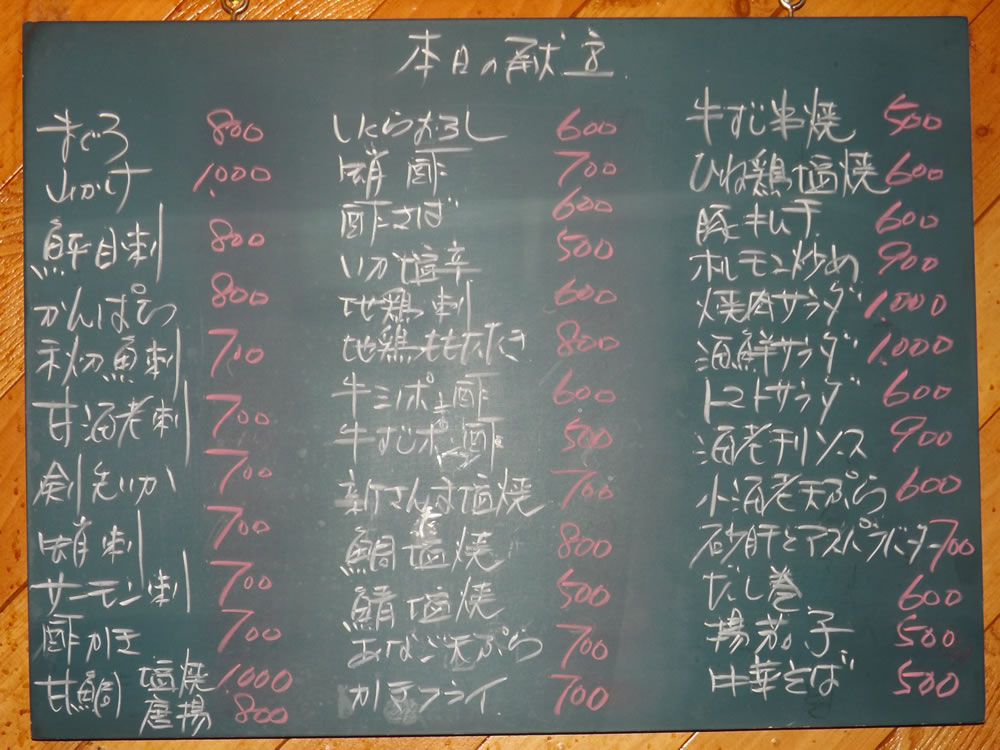 本日の献立
まぐろ 800
山かけ 1,000
鮃目刺 800
かんぱち 800
秋刀魚刺 700
甘海老刺 700
剣先いか 700
蛸刺 700
サーモン刺 700
酢かき 700
甘鯛 塩焼 1,000
唐揚 800
いくらおろし 600
蛸酢 700
酢さば 600
いか塩辛 500
地鶏刺 600
地鶏ももたたき 800
牛ミノポン酢 600
牛すじポン酢 500
新さんま塩焼 700
鯛塩焼 800
鯖塩焼 500
あなご天ぷら 700
カキフライ 700
牛すじ串焼 500
ひね鶏塩焼 600
豚キムチ 600
ホルモン炒め 900
焼肉サラダ 1,000
海鮮サラダ 1,000
トマトサラダ 600
海老チリソース 900
小海老天ぷら 600
砂肝とアスパラバター 700
だし巻 600
揚茄子 500
中華そば 500